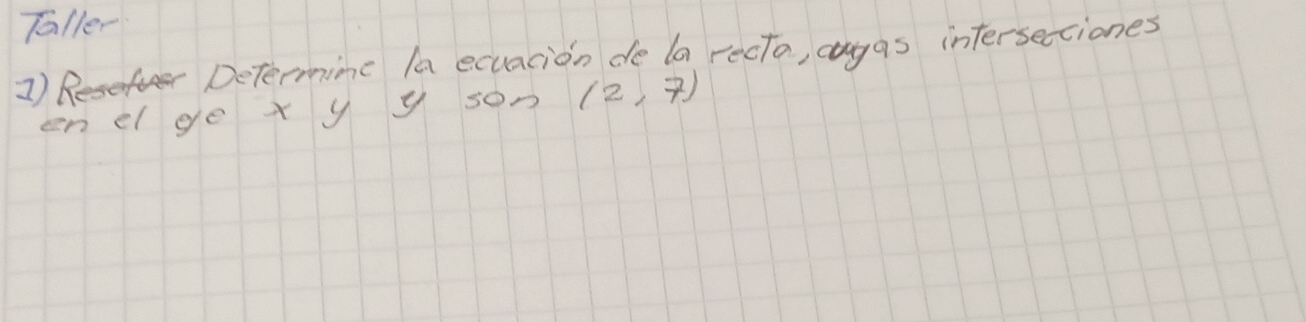 Taller
1) Determine la ecuación de la recta, cuyas intersecciones
en el eje x y y son (2, 7)